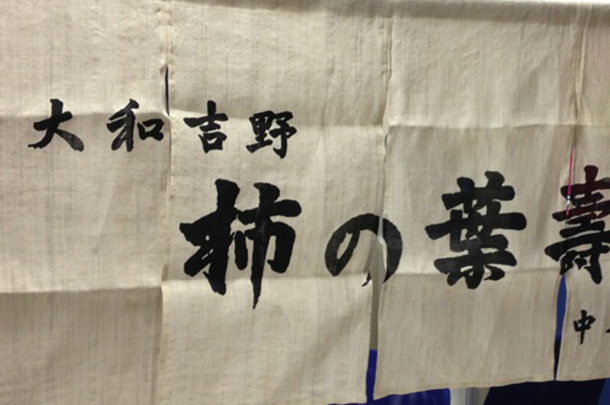 大和吉野
柿の葉壽
中